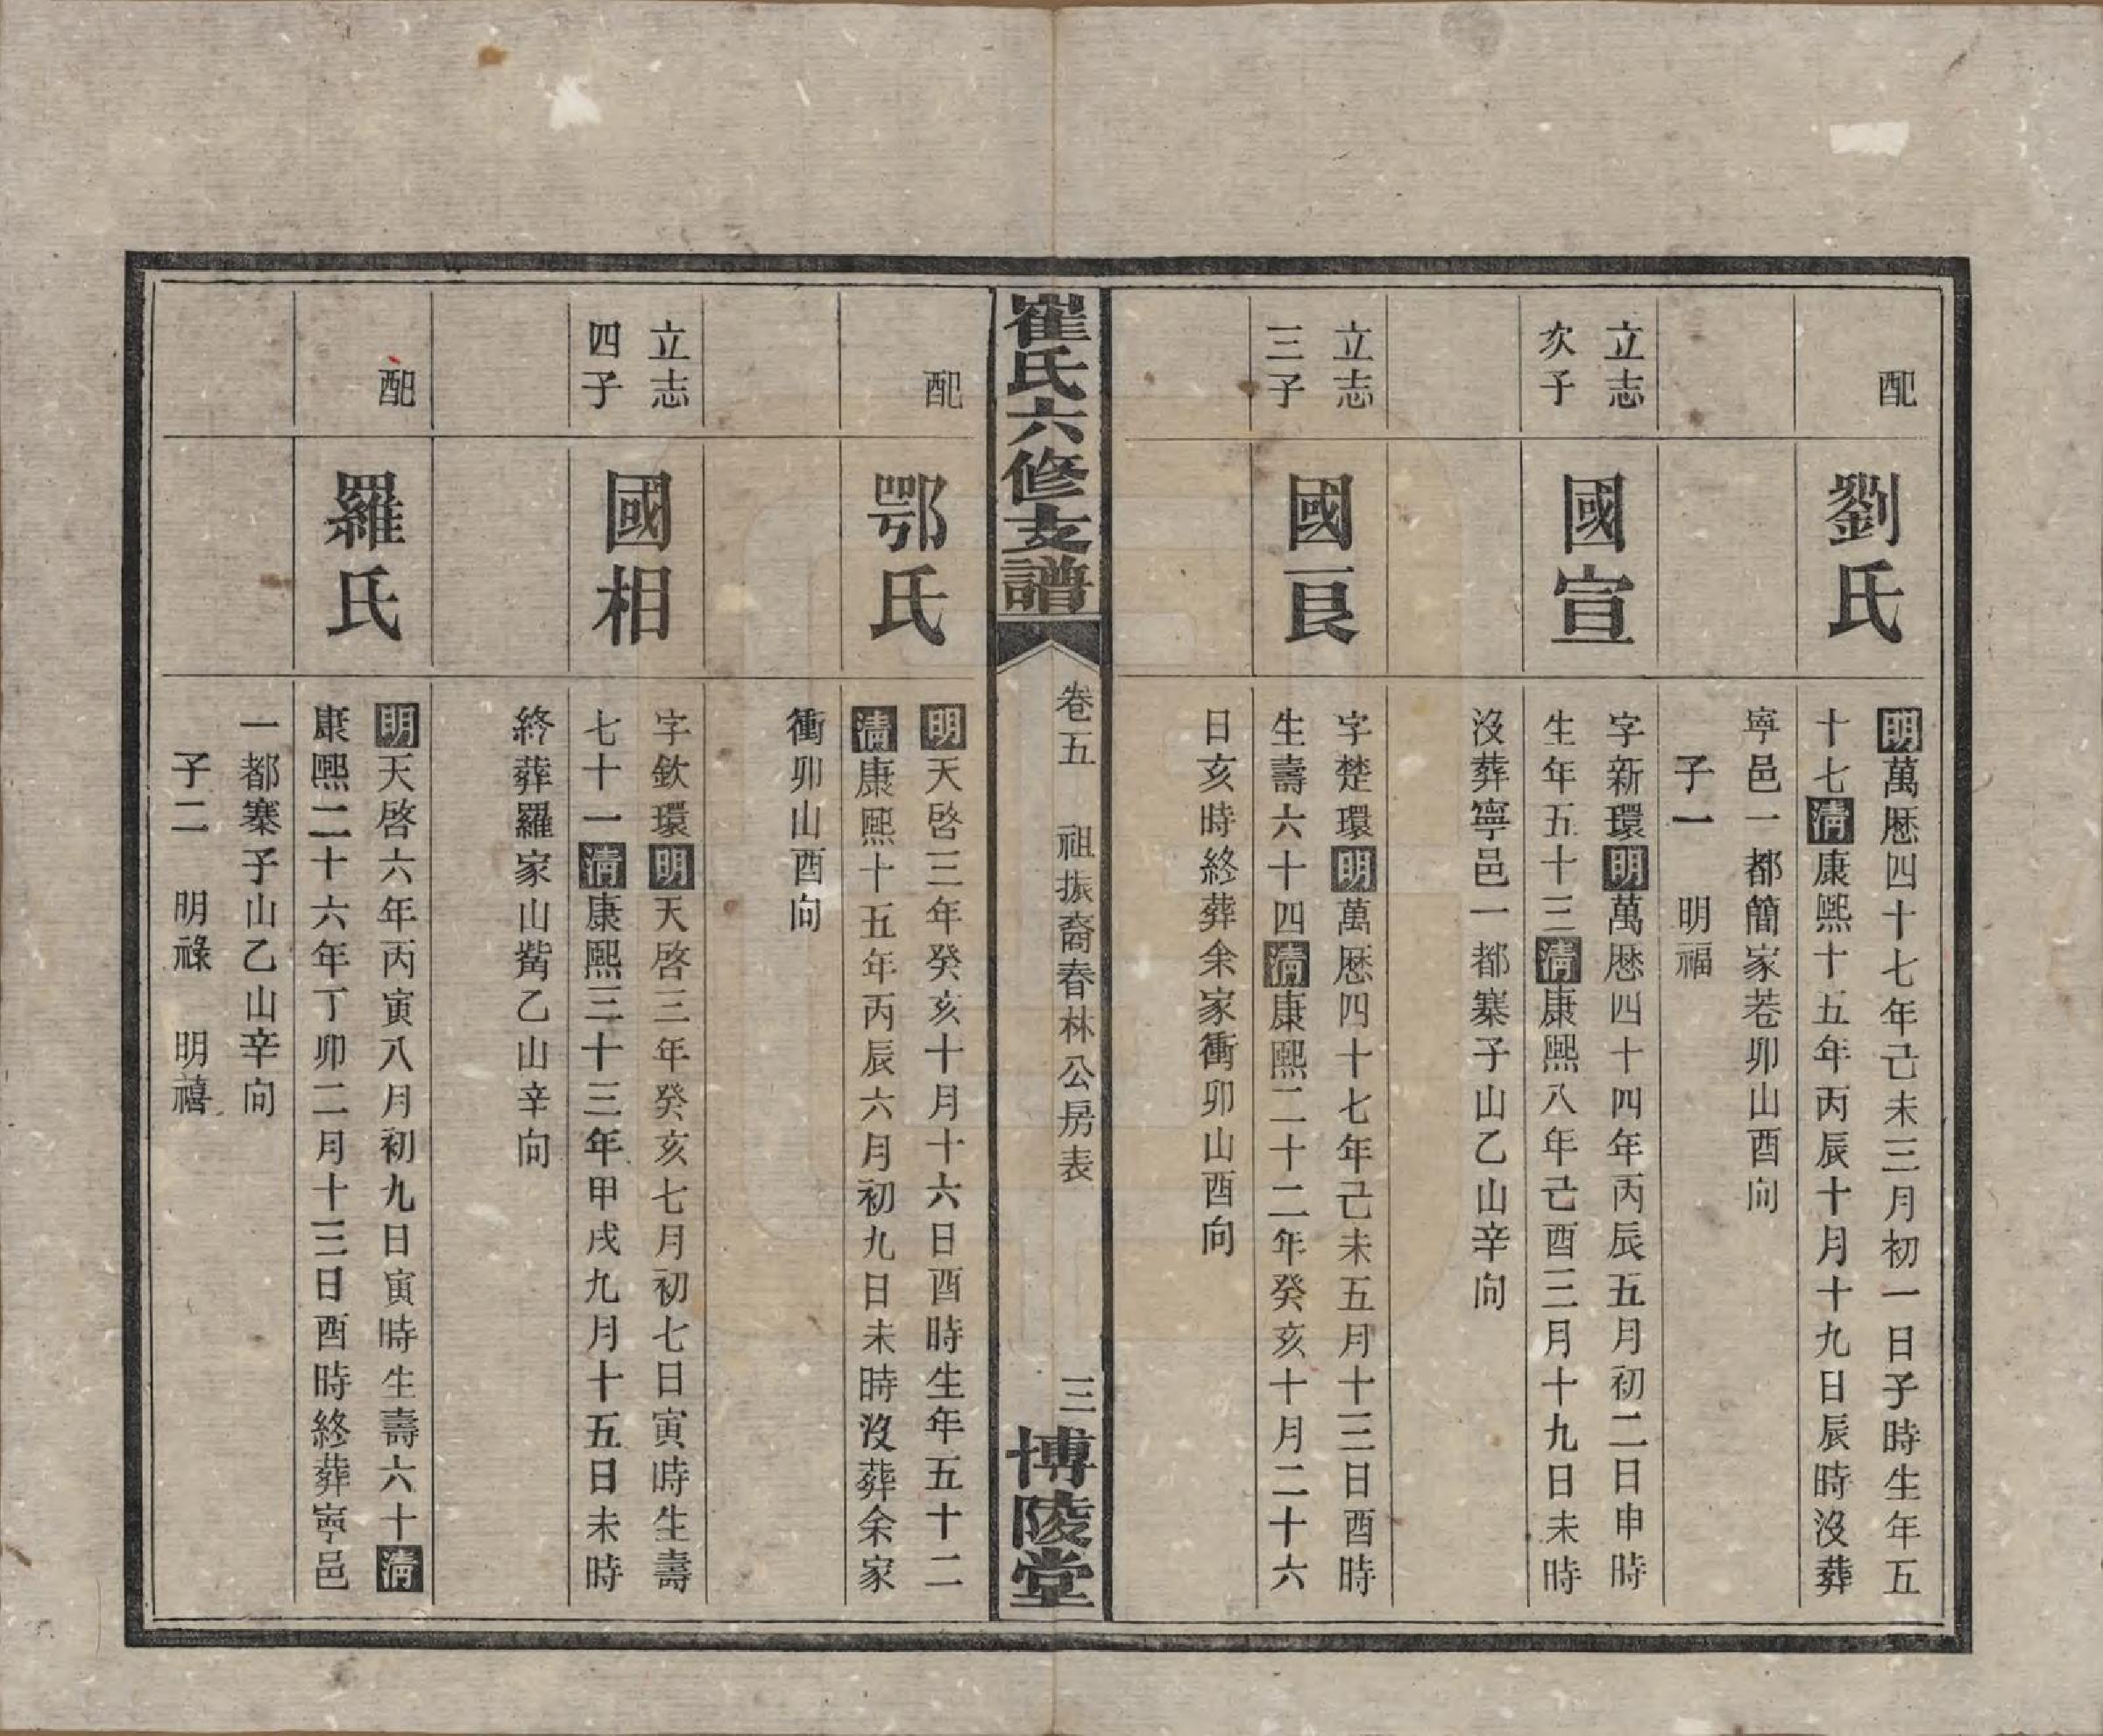 配
劉氏
明萬厯四十七年己未三月初一日子時生年五
十七清康熙十五年丙辰十月十九日辰時沒葬
寧邑一都簡家巷卯山酉向
子一　明福
立志
次子
國宣
字新環明萬厯四十四年丙辰五月初二日申時
生年五十三清康熙八年己酉三月十九日未時
沒葬寧邑一都寨子山乙山辛向
立志
三子
國良
字楚環明萬厯四十七年己未五月十三日酉時
生壽六十四清康熙二十二年癸亥十月二十六
日亥時終葬余家衝卯山酉向
崔氏六修支譜
卷五　祖振裔春林公房表
三
博陵堂
配
鄂氏
明天啓三年癸亥十月十六日酉時生年五十二
清康熙十五年丙辰六月初九日未時沒葬余家
衝卯山酉向
立志
四子
國相
字欽環明天啓三年癸亥七月初七日寅時生壽
七十一清康熙三十三年甲戌九月十五日未時
終葬羅家山觜乙山辛向
配
羅氏
明天啓六年丙寅八月初九日寅時生壽六十清
康熙二十六年丁卯二月十三日酉時終葬寧邑
一都寨子山乙山辛向
子二　明祿　明禧